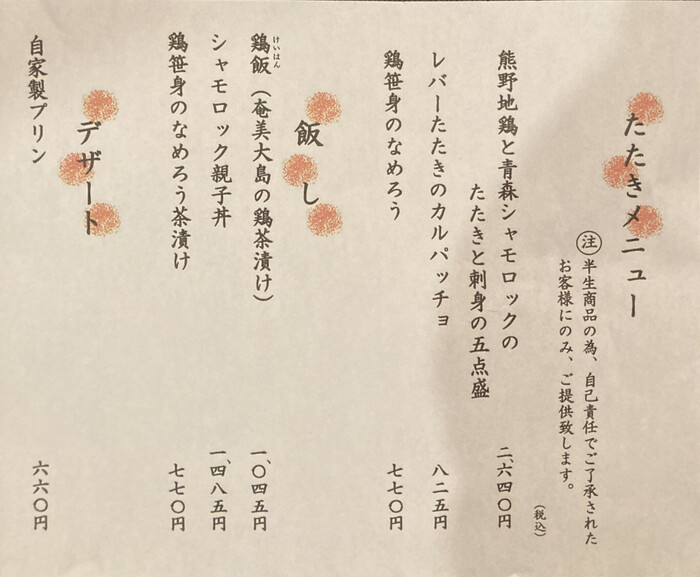 たたきメニュー
注 半生商品の為、自己責任でご了承された
お客様にのみ、ご提供致します。
（税込）
熊野地鶏と青森シャモロックの
たたきと刺身の五点盛 二、六四〇円
レバーたたきのカルパッチョ 八二五円
鶏笹身のなめろう 七七〇円
飯し
鶏飯（奄美大島の鶏茶漬け） 一、〇四五円
けいはん
シャモロック親子丼 一、四八五円
鶏笹身のなめろう茶漬け 七七〇円
デザート
自家製プリン 六六〇円